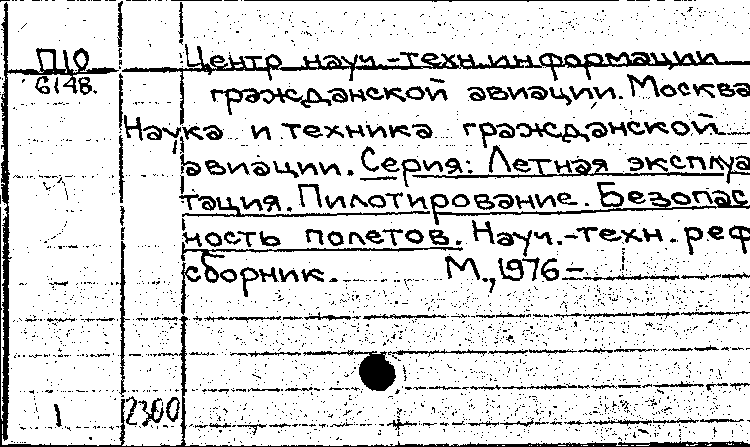 П10 Центр науч.-техн.информации
6148. гражданской авиации. Москва
Наука и техника гражданской
авиации. Серия: Летная эксплуа
тация. Пилотирование. Безопас
ность полетов. Науч.-техн. реф
сборник. М., 1976 –
1 2300